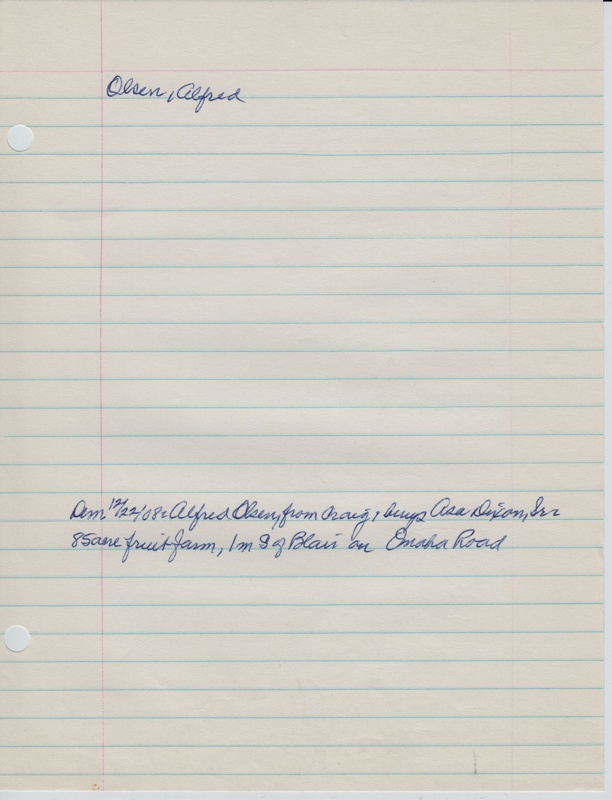 Olsen, Alfred
Dem 12/22/08: Alfred Olsen, from Craig, buys Asa Dixon, Sr:
85 acre fruit farm, 1 m S of Blair on Omaha Road